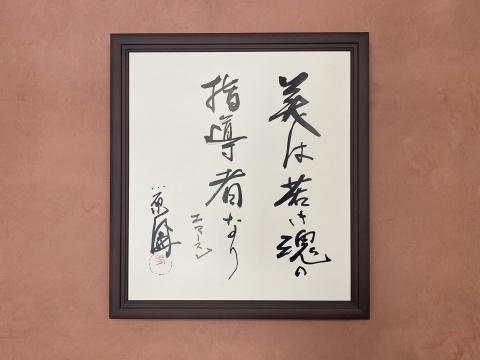 美は若き魂の
指導者なり
エマースン